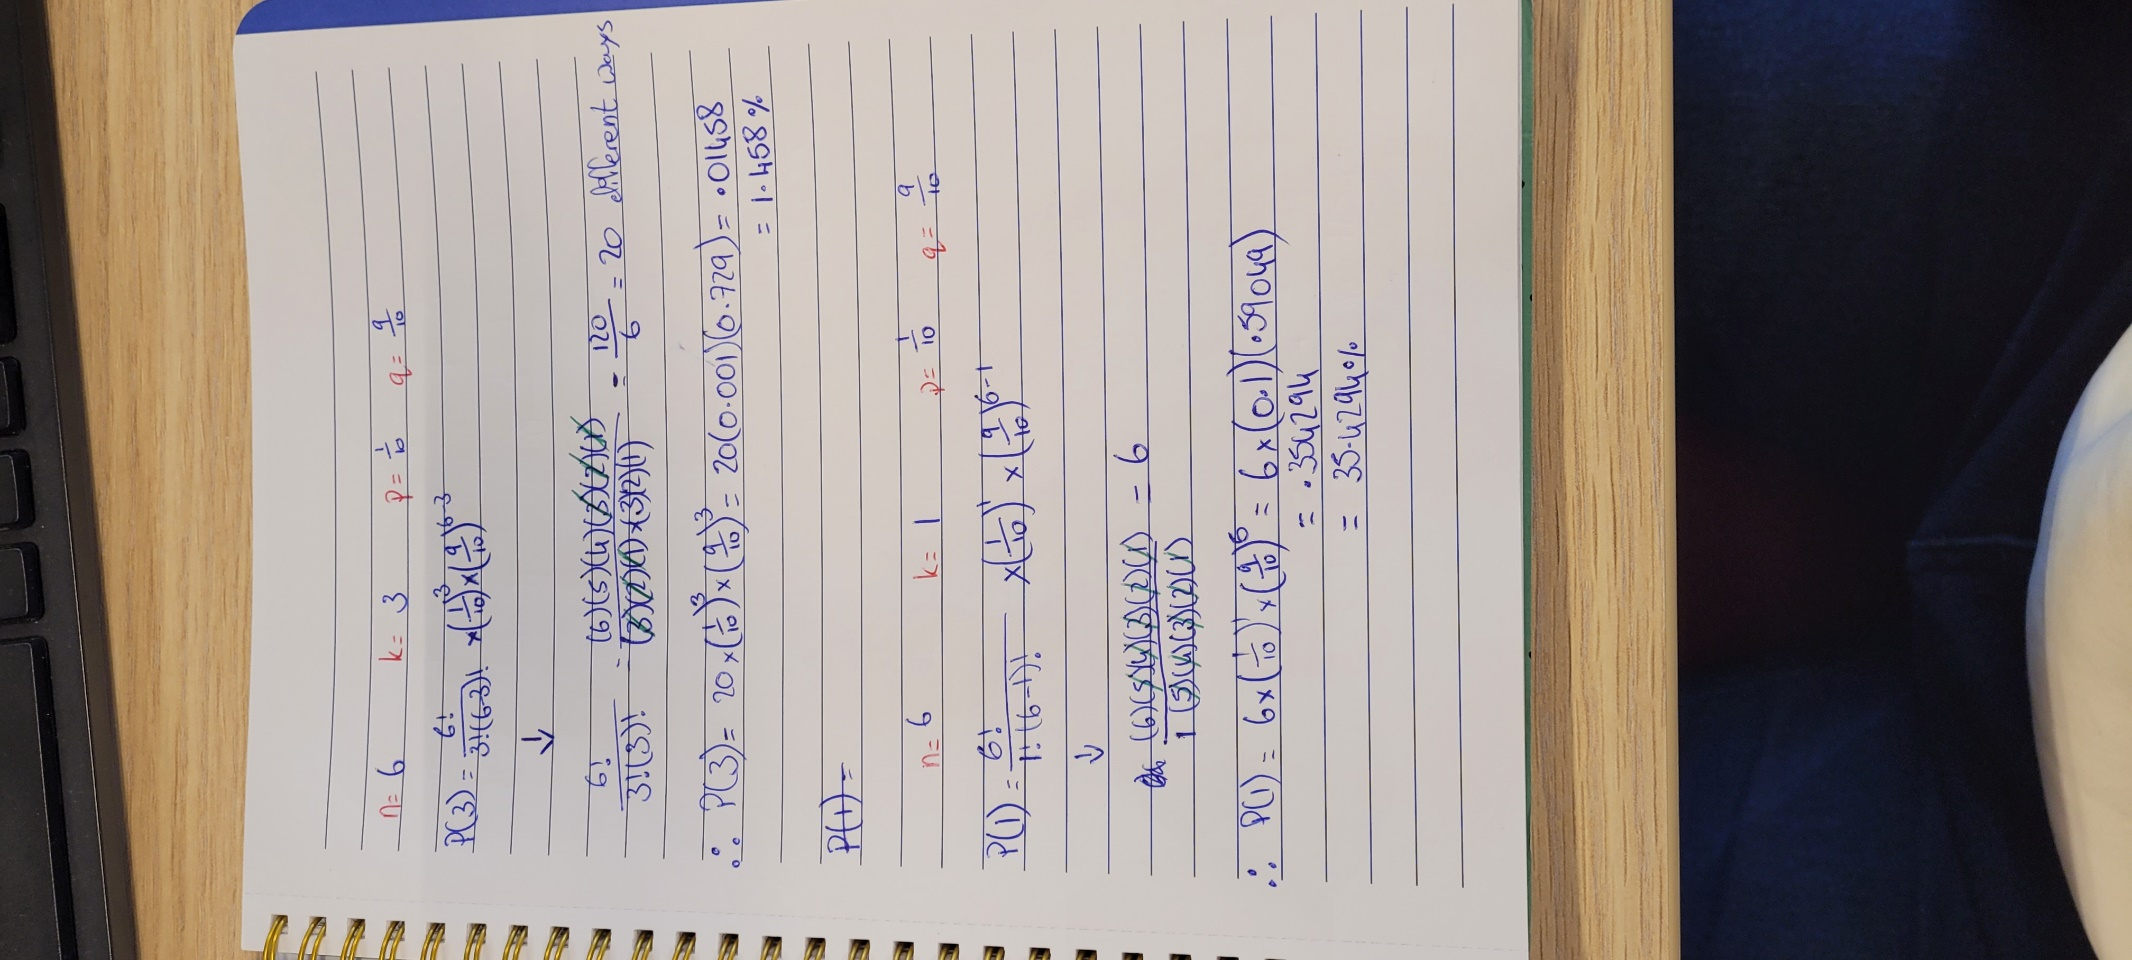 n= 6 k= 3 p= 1/10 q= 9/10
P(3) = 6!/3!(6-3)! ×(1/10)^3 ×(9/10)^6-3
↓
6!/3!(3)! = (6)(5)(4)(3)(2)(1)/(3)(2)(1)×(3)(2)(1) = 120/6 = 20 different ways
∴ P(3) = 20 ×(1/10)^3 ×(9/10)^3 = 20(0.001)(0.729) = .01458
= 1.458%
P(1) =
n= 6 k= 1 p= 1/10 q= 9/10
P(1) = 6!/1!(6-1)! ×(1/10)^1 ×(9/10)^6-1
↓
(6)(5)(4)(3)(2)(1)/1(5)(4)(3)(2)(1) = 6
∴ P(1) = 6×(1/10)^1 ×(9/10)^5 = 6×(0.1)(.59049)
= .354294
= 35.4294%